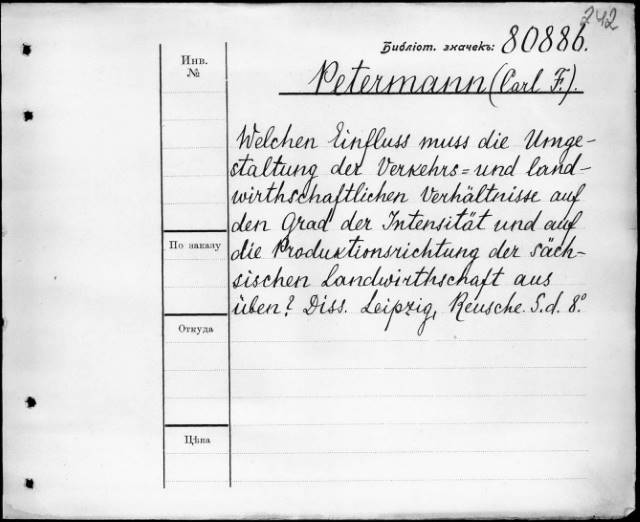 242
Библіот. значекъ: 80886.
Инв.
№
Petermann (Carl F.).
Welchen Einfluss muss die Umge-
staltung der Verkehrs= und land-
wirthschaftlichen Verhältnisse auf
den Grad der Intensität und auf
die Produktionsrichtung der säch-
sischen Landwirthschaft aus
üben? Diss. Leipzig, Reusche. S.d. 8°
По заказу
Откуда
Цѣна